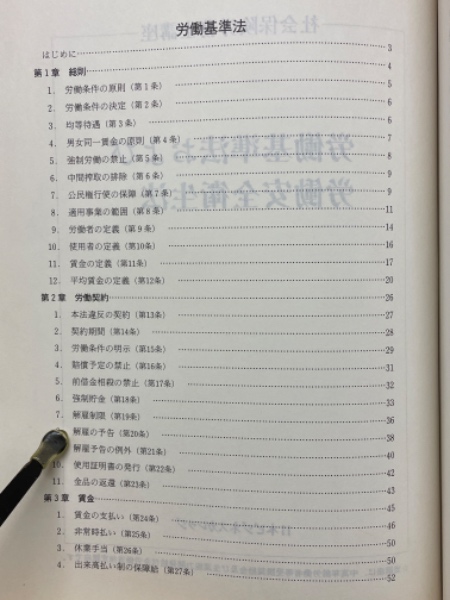 労働基準法
はじめに 3
第1章 総則 4
1. 労働条件の原則（第1条） 5
2. 労働条件の決定（第2条） 5
3. 均等待遇（第3条） 6
4. 男女同一賃金の原則（第4条） 7
5. 強制労働の禁止（第5条） 8
6. 中間搾取の排除（第6条） 9
7. 公民権行使の保障（第7条） 9
8. 適用事業の範囲（第8条） 11
9. 労働者の定義（第9条） 14
10. 使用者の定義（第10条） 16
11. 賃金の定義（第11条） 17
12. 平均賃金の定義（第12条） 20
第2章 労働契約 26
1. 本法違反の契約（第13条） 27
2. 契約期間（第14条） 28
3. 労働条件の明示（第15条） 29
4. 賠償予定の禁止（第16条） 31
5. 前借金相殺の禁止（第17条） 32
6. 強制貯金（第18条） 33
7. 解雇制限（第19条） 36
解雇の予告（第20条） 38
解雇予告の例外（第21条） 40
10. 使用証明書の発行（第22条） 42
11. 金品の返還（第23条） 43
第3章 賃金 45
1. 賃金の支払い（第24条） 46
2. 非常時払い（第25条） 50
3. 休業手当（第26条） 50
4. 出来高払い制の保障給（第27条） 52